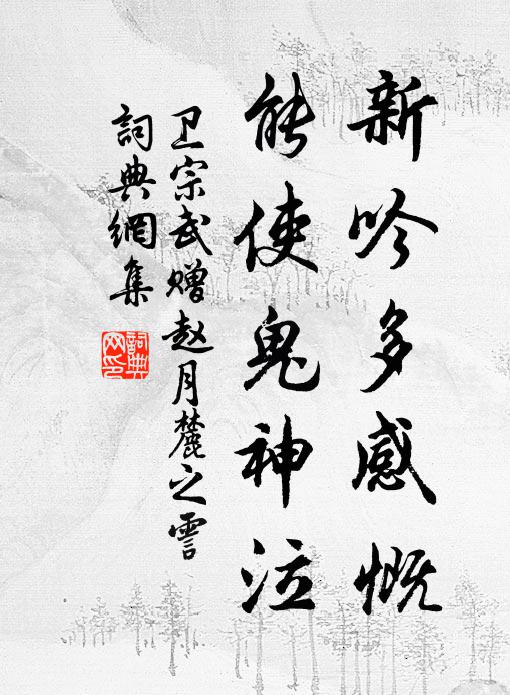 新吟多感慨
能使鬼神泣
卫宗武赠赵月麓之霅
詞典網集
詞典網印